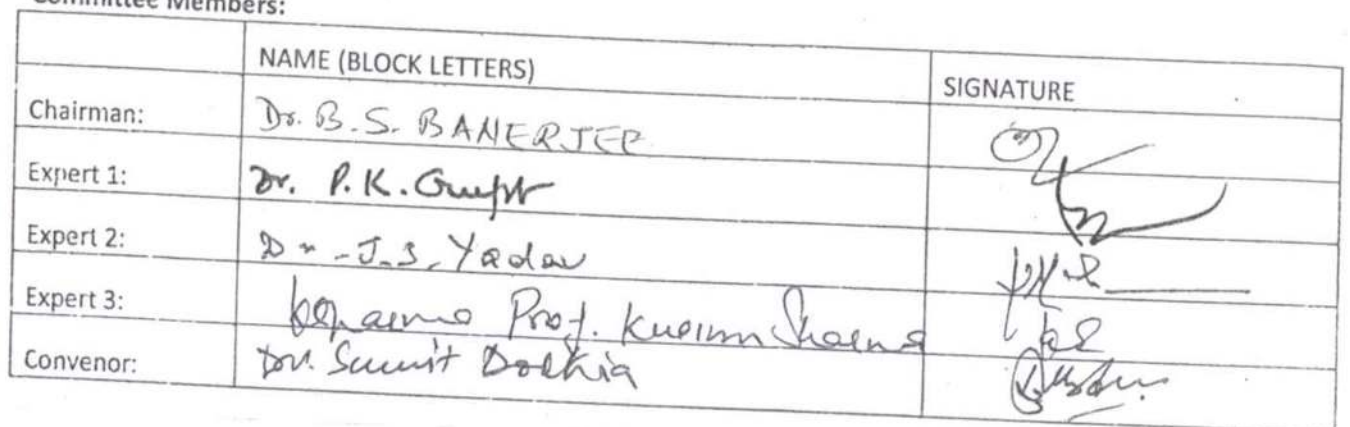 Committee Members:
NAME (BLOCK LETTERS) SIGNATURE
Chairman: Dr. B. S. BANERJEE
Expert 1: Dr. P. K. Gupta
Expert 2: Dr. J. S. Yadav
Expert 3: Prof. Kusum Sharma
Convenor: Dr. Sumit Dookia